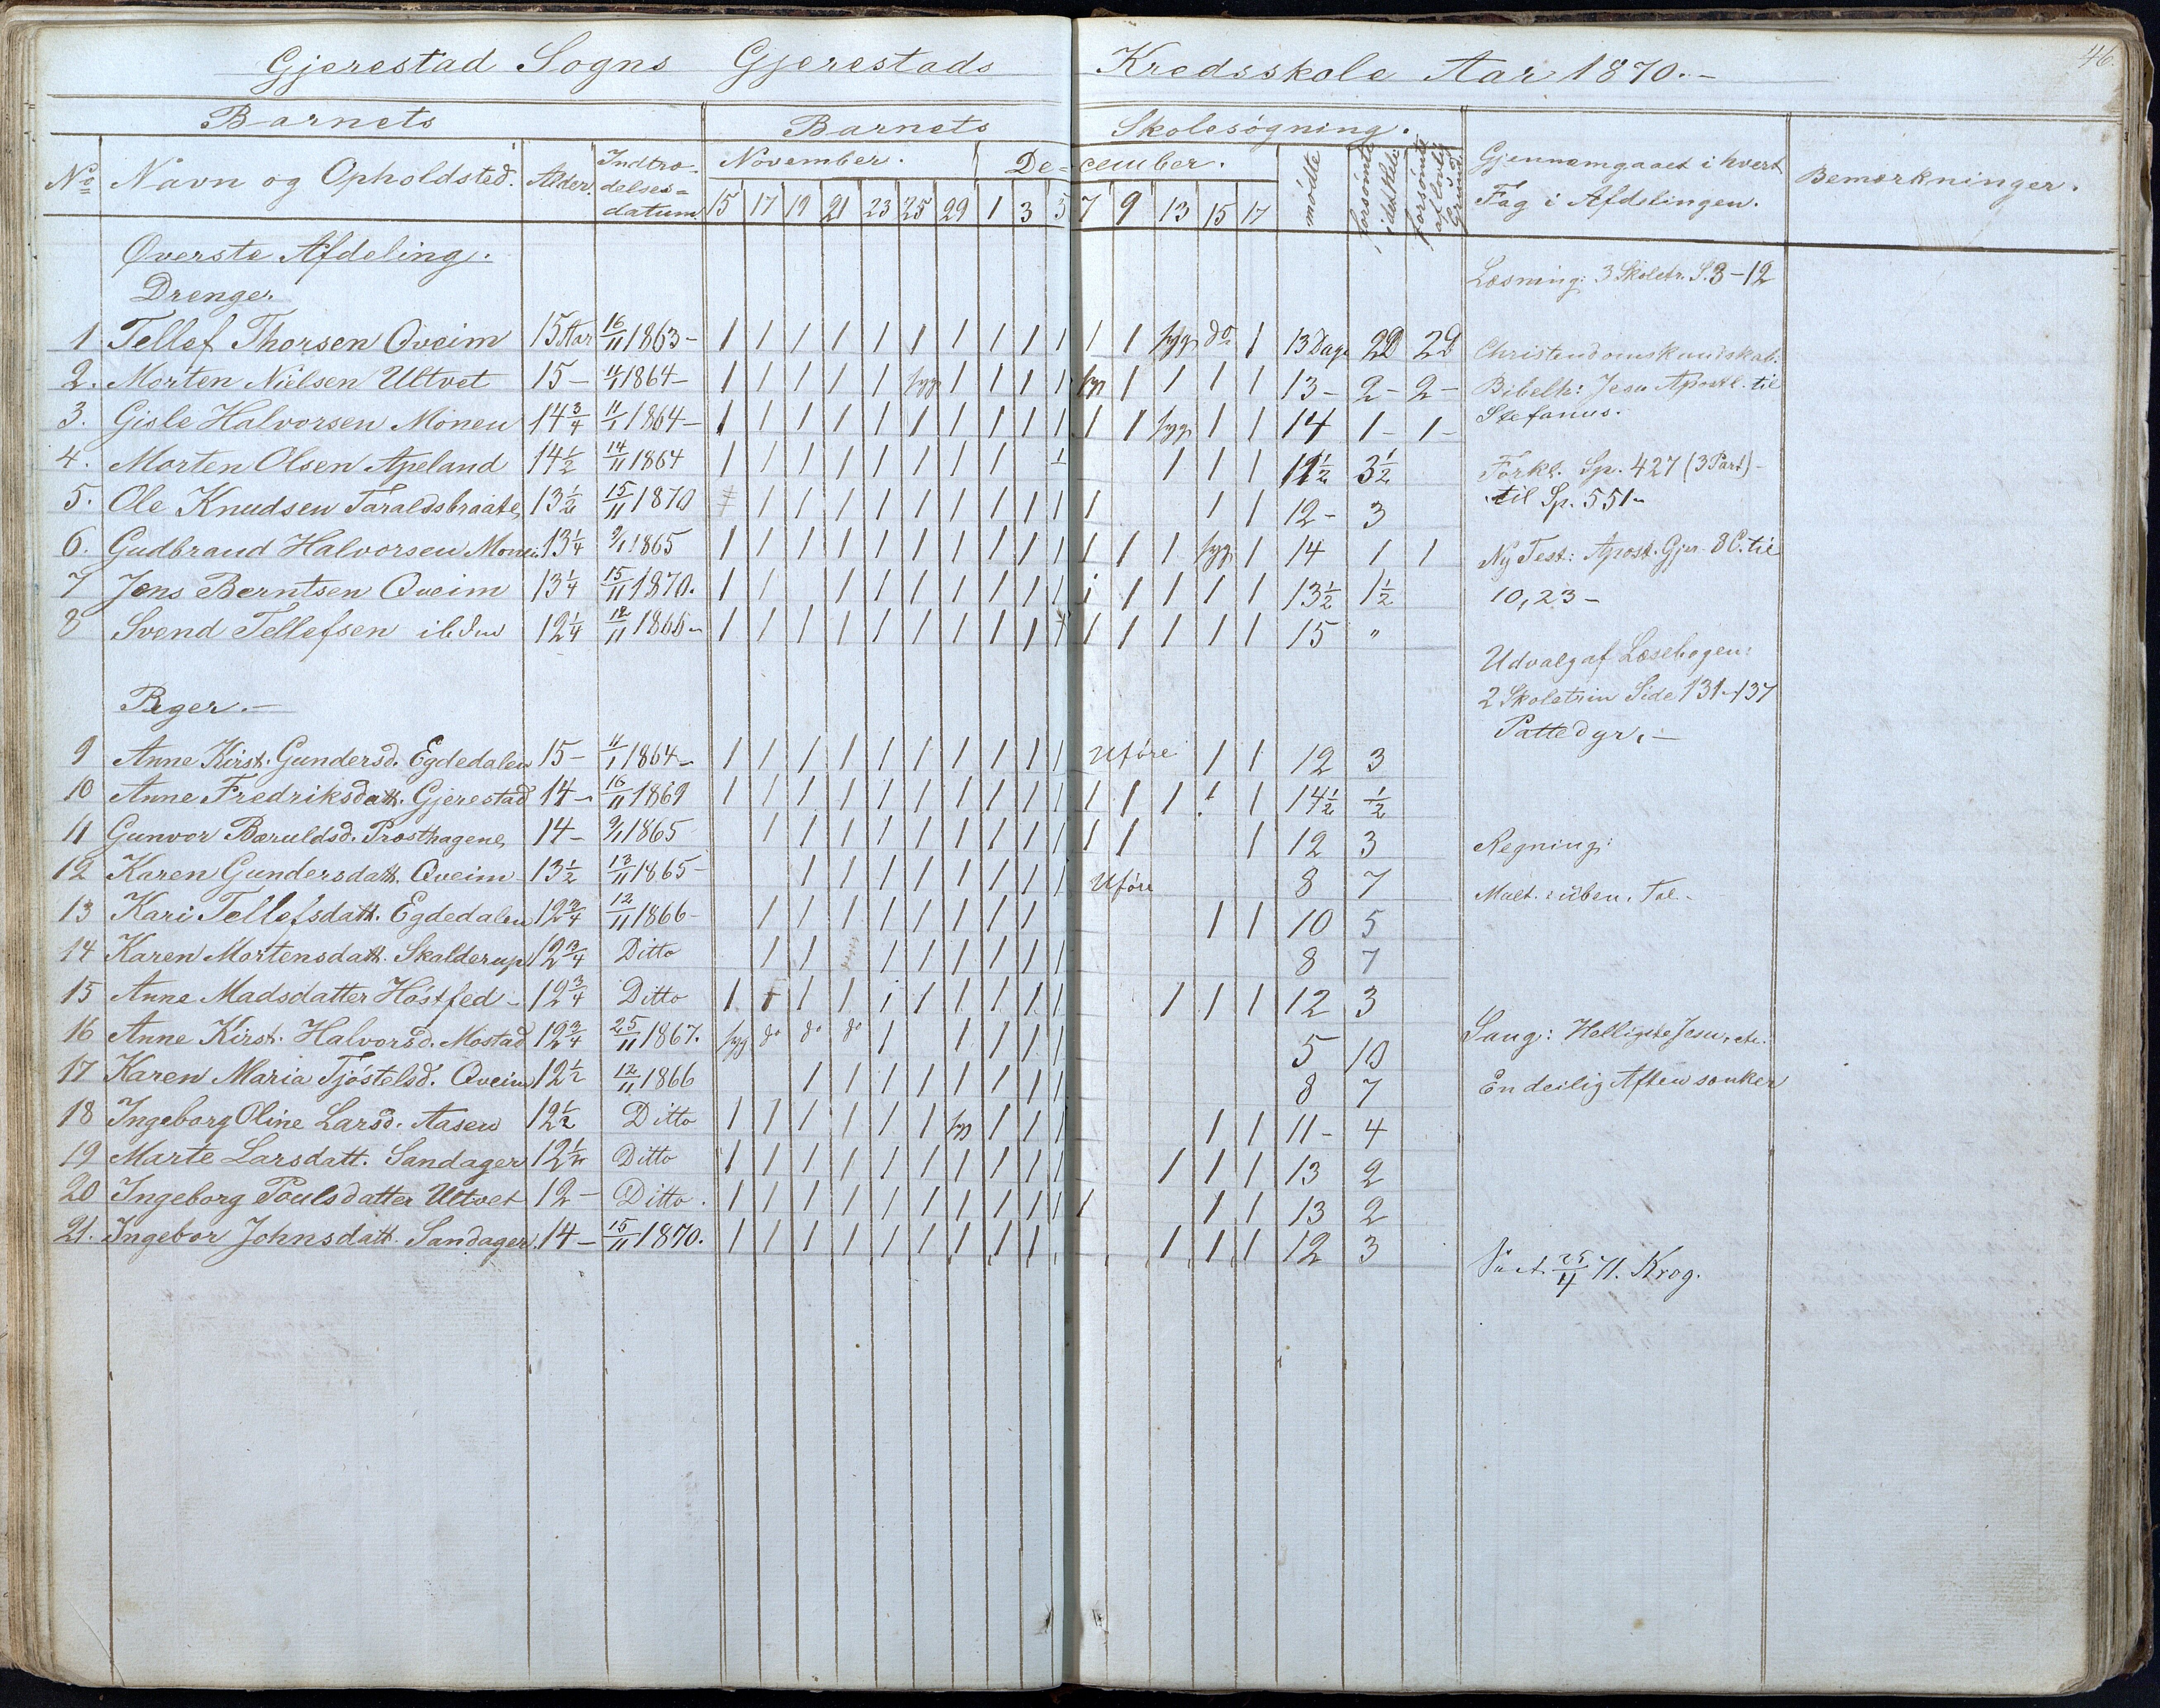 46.
Gjerestad Sogns Gjerestads Kredsskole Aar 1870.-
Barnets Barnets Skolesøgning.
No Navn og Opholdsted. Alder. Indtrædelses=datum November. December. mødte forsømte i det Hele forsømte af lovlig Grund Gjennemgaaet i hvert Fag i Afdelingen. Bemærkninger.
15 17 19 21 23 25 29 1 3 5 7 9 13 15 17
Øverste Afdeling.
Drenge.
1. Tellef Thorsen Qveim 15 Aar 16/11 1863- 1 1 1 1 1 1 1 1 1 1 1 1 syg do 1 13 Dage 2D 2D
2. Morten Nielsen Ultvet 15- 11/1 1864- 1 1 1 1 1 syg 1 1 1 1 syg 1 1 1 1 13- 2- 2-
3. Gisle Halvorsen Monen 14 3/4 11/1 1864- 1 1 1 1 1 1 1 1 1 1 1 1 syg 1 1 14 1- 1-
4. Morten Olsen Apeland 14 1/2 14/11 1864 1 1 1 1 1 1 1 1 1 1 1 1 11 1/2 3 1/2
5. Ole Knudsen Taraldsbraate 13 1/2 15/11 1870 1 1 1 1 1 1 1 1 1 1 1 1 12- 3
6. Gudbrand Halvorsen Monen 13 1/4 9/1 1865 1 1 1 1 1 1 1 1 1 1 1 1 1 syg 1 14 1 1
7 Jens Berntsen Qveim 13 1/4 15/11 1870. 1 1 1 1 1 1 1 1 1 1 1 1 1 1 13 1/2 1 1/2
8 Svend Tellefsen ibidm 12 1/4 12/11 1866- 1 1 1 1 1 1 1 1 1 1 1 1 1 1 1 15 "
Piger.-
9 Anne Kirst. Gundersd. Egdedalen 15- 11/1 1864- 1 1 1 1 1 1 1 1 1 1 Uføre 1 1 12 3
10 Anne Fredriksdatt. Gjerestad 14- 16/11 1869 1 1 1 1 1 1 1 1 1 1 1 1 1 1 1 14 1/2 1/2
11 Gunvor Bæruldsd. Præsthagene 14- 9/1 1865 1 1 1 1 1 1 1 1 1 1 1 1 12 3
12 Karen Gundersdatt. Qveim 13 1/2 13/11 1865- 1 1 1 1 1 1 1 1 Uføre 8 7
13 Kari Tellefsdatt. Egdedalen 12 3/4 12/11 1866- 1 1 1 1 1 1 1 1 1 1 10 5
14 Karen Mortensdatt. Skalderup 12 3/4 Ditto 1 1 1 1 1 1 1 1 8 7
15 Anne Madsdatter Høstfed- 12 3/4 Ditto 1 1 1 1 1 1 1 1 1 1 1 1 1 12 3
16 Anne Kirst. Halvorsd. Mostad 12 3/4 25/11 1867. syg do do do 1 1 1 1 1 5 10
17 Karen Maria Tjøstelsd. Qveim 12 1/2 12/11 1866 1 1 1 1 1 1 1 1 8 7
18 Ingeborg Oline Larsd. Aasen 12 1/2 Ditto 1 1 1 1 1 1 syg 1 1 1 1 1 11- 4
19 Marte Larsdatt. Sandager 12 1/4 Ditto 1 1 1 1 1 1 1 1 1 1 1 1 1 13 2
20 Ingeborg Poulsdatter Ultvet 12- Ditto. 1 1 1 1 1 1 1 1 1 1 1 1 1 13 2
21. Ingebor Johnsdatt. Sandager 14- 15/11 1870. 1 1 1 1 1 1 1 1 1 1 1 1 12 3
Læsning: 3 Skoletr. S. 3-12
Christendomskundskab:
Bibelh: Jesu Apostl. til
Stefanus.
Forkl. Sp. 427 (3 Part)-
til Sp. 551-
Ny Test: Apost. Gjer. 8 C. til
10,23-
Udvalg af Læsebogen:
2 Skoletrin Side 131-137
Pattedyr.-
Regning:
Mult. i üben. Tal-
Sang: Helligste Jesu, etc.
En deilig Aften sænker
11. Krog.